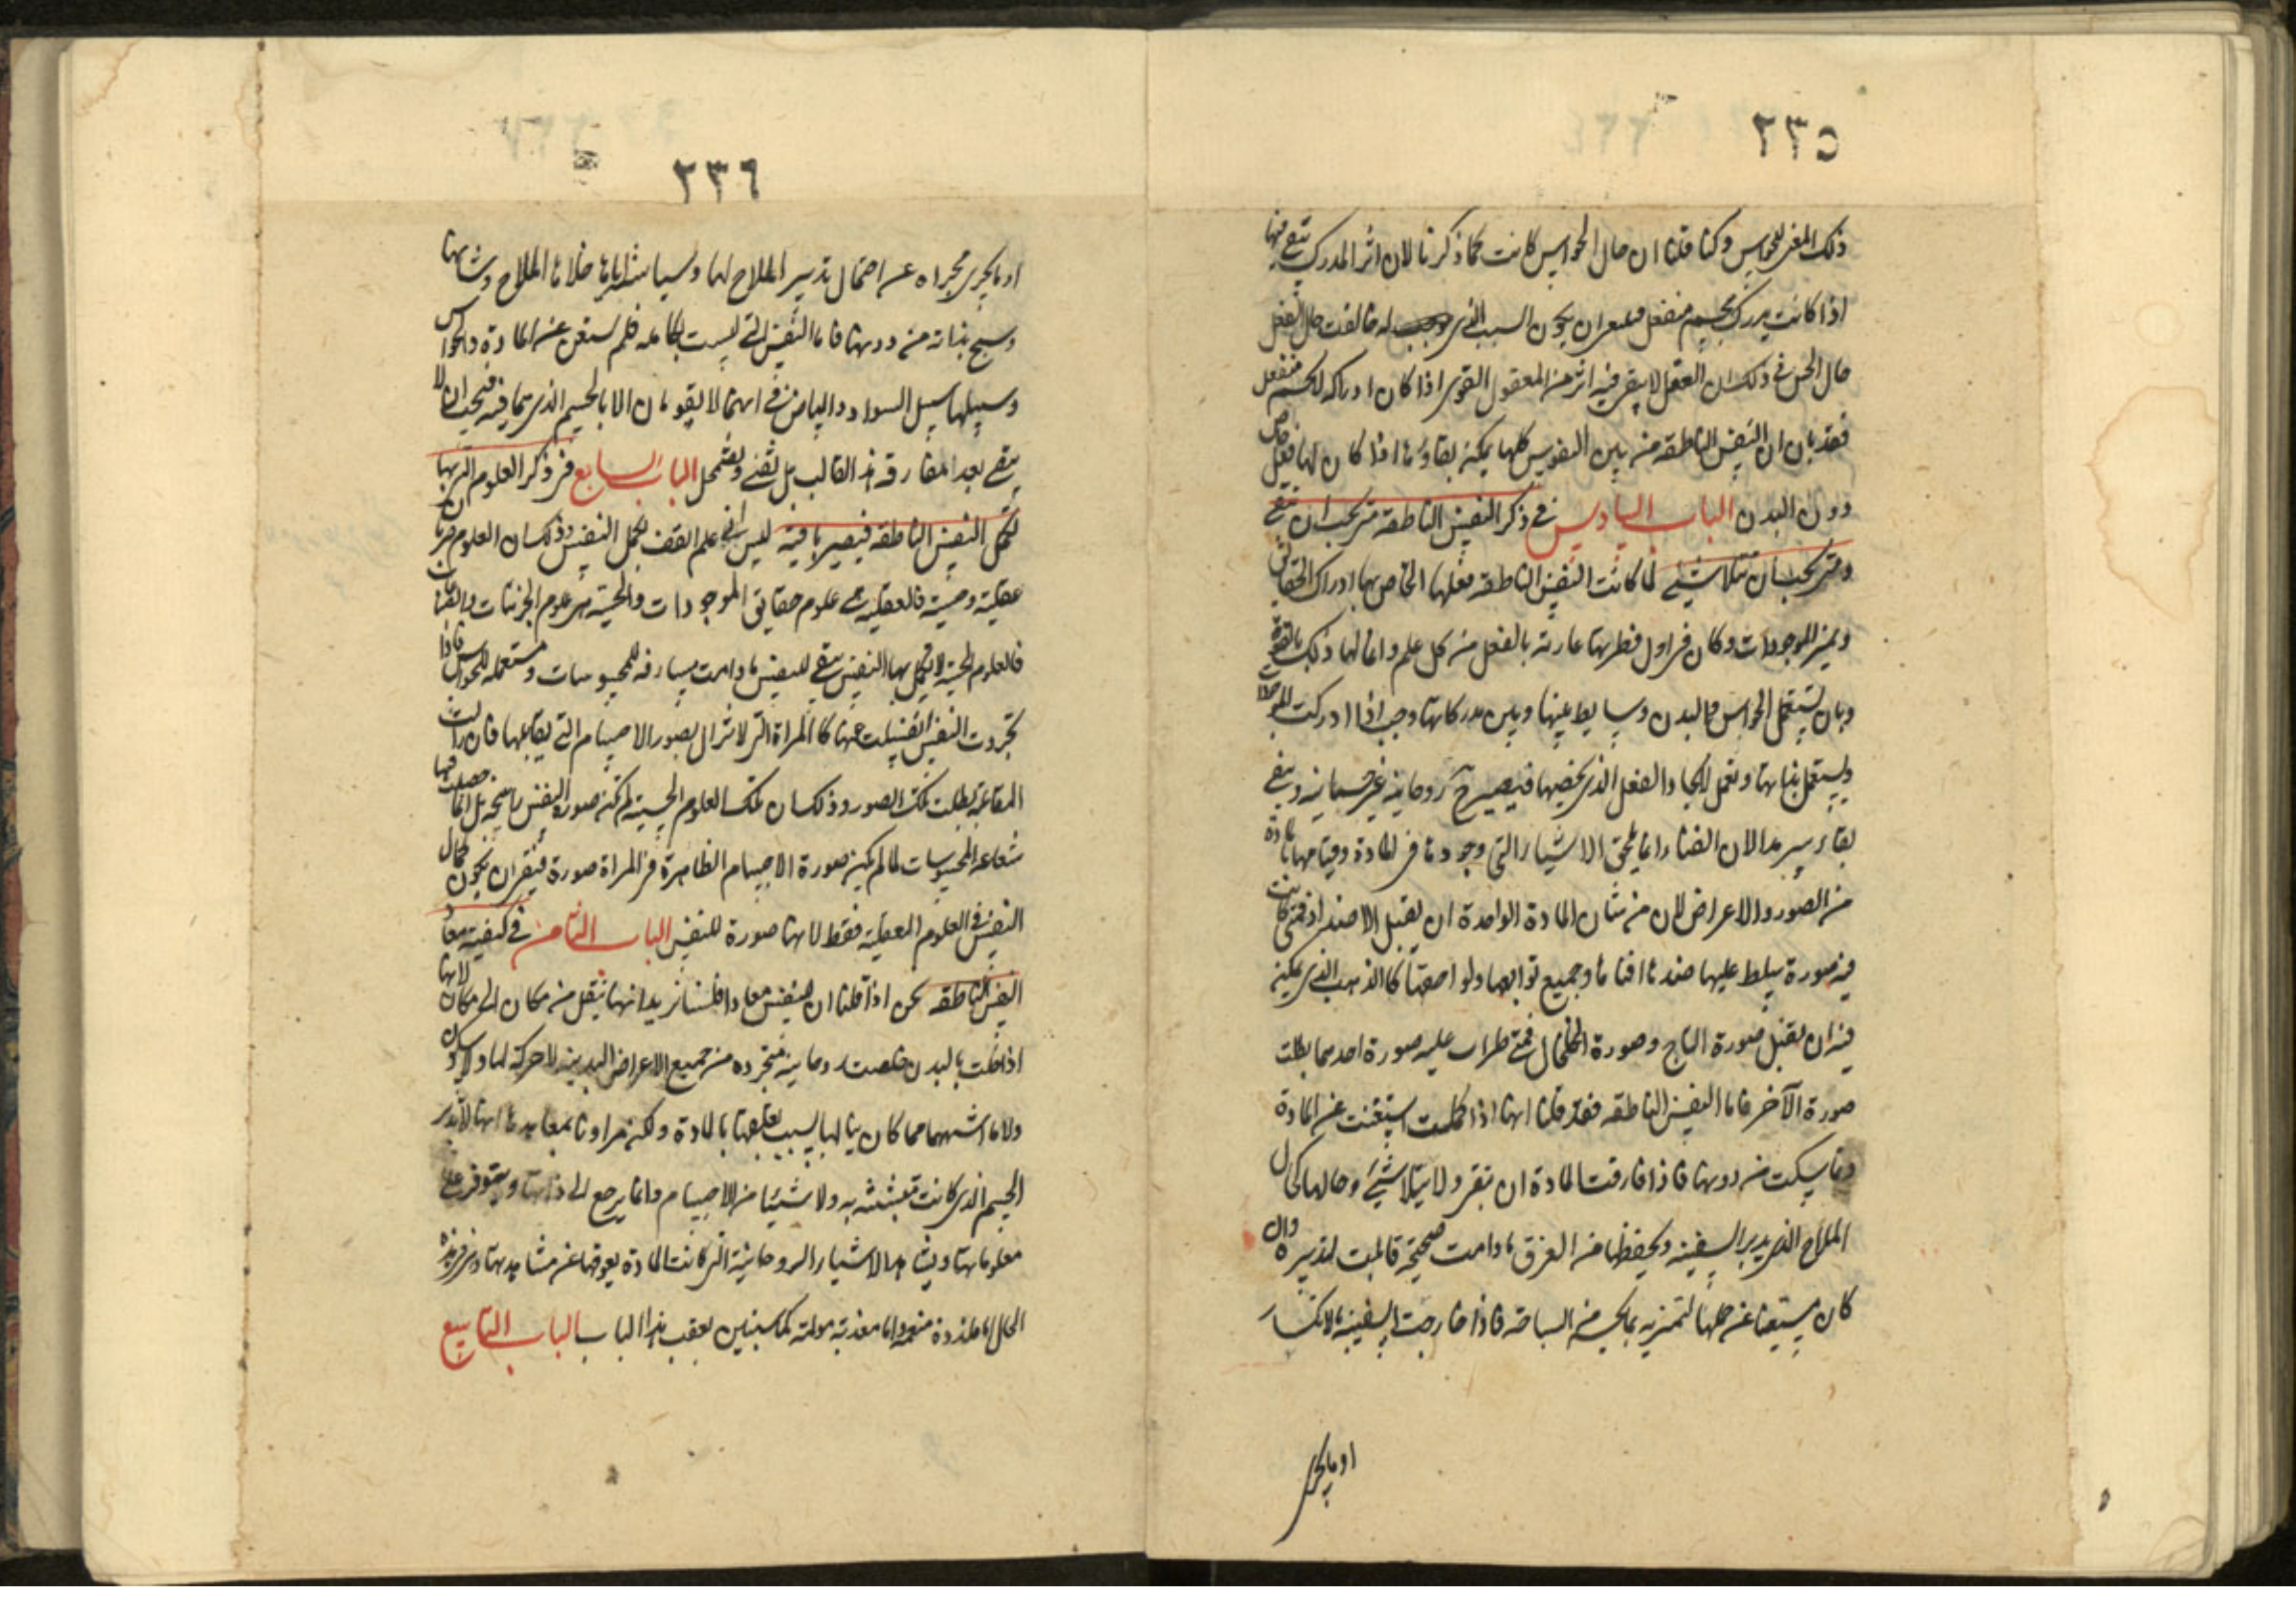 ٢٣٥
ذلك المغير للحواس وكنا قلنا ان حال الحواس كانت كما ذكرنا لان اثر المدرك يبقى فيها
اذا كانت يدرك بجسم منفعل ان يكون السبب الذى له خالفت حال العقل
حال الحس فى ذلك ان العقل لا يبقى فيه اثر من المعقول القوى اذا كان ادراكه لا بجسم منفعل
فقد بان ان النفس الناطقه من بين النفوس كلها يمكن بقاؤها اذا كان لها فعل خاص
دون البدن الباب السادس فى ذكر النفس الناطقه متى يجب ان تبقى
ومتى يجب ان تتلاشى لما كانت النفس الناطقه فعلها الخاص بها ادراك الحقايق
وتميز الموجودات وكان فى اول فطرتها عارية بالفعل من كل علم وانما لها ذلك بالقوة
وبان تستعمل الحواس والبدن وسايط بينها وبين مدركاتها وجب اذا ادركت
ويستعمل بذاتها وتعمل الفعل الذى يخصها فيصير ح روحانيه غير جسمانيه وتبقى
بقاء سرمدا لان الفناء انما يلحق الاشياء التى وجودها فى المادة وقيامها بالمادة
من الصور والاعراض لان من شان المادة الواحدة ان يقبل الاضداد فمتى كانت
فيه صورة يسلط عليها ضدها افناها وجميع توابعها ولواحقها كالذهب الذى يمكن
فيه ان يقبل صورة التاج وصورة الخلخال فمتى طرات عليه صورة احدهما بطلت
صورة الآخر فاما النفس الناطقه فقد قلنا انها اذا كملت استغنت عن المادة
وتماسكت من دونها فاذا فارقت المادة ان تبقى ولا يتلاشى وحالها كحال
الملاح الذى يدبر السفينه ويحفظها من الغرق مادامت صحيحة قابلت لتدبيره وان
كان مستغنا عن حملها لتميزه بما يحسن من السباحه فاذا خارجت السفينه بالانكسار
اوما يجرى
٢٣٦
اوما يجرى مجراه عن احتمال تدبير الملاح لها وسياسته اياها خلاها الملاح وشانها
وسبح بذاته من دونها فاما النفس التى ليست بكامله فلم تستغن عن المادة والحواس
وسبيلها سبيل السواد والبياض فى انهما لا يقومان الا بالجسم الذى هما فيه فيجب ان لا
يبقى بعد المفارقه هذا القالب بل تفنى وتضمحل الباب السابع فى ذكر العلوم التى بها
تكمل النفس الناطقه فيصير باقية ليس اى علم اتفق يكمل النفس وذلك ان العلوم ضربان
عقلية وحسية فالعقليه هى علوم حقايق الموجودات والحسية هى علوم الجزئيات
فالعلوم الحسية لا يكمل بها النفس يبقى للنفس مادامت مسارفه للمحسوسات ومستعمله للحواس فاذا
تجردت النفس انفسلت عنها كالمراة التى لا تزال بصور الاجسام التى يقابلها فان زالت
المقابلة بطلت تلك الصور وذلك ان تلك العلوم الحسية لم تكن صورة النفس راسخة بل انما حصلت فيها
شعاعه المحسوسات لما لم يكن صورة الاجسام الظاهرة فى المراة صورة فبقى ان يكون كمال
النفس فى العلوم العقلية فقط لانها صورة للنفس الباب الثامن فى كيفية معاد
النفس الناطقه نحن اذا قلنا ان للنفس معادا فلسنا نريد انها تنتقل من مكان الى مكان لانها
اذا خلت بالبدن خلصت روحانية متجرده من جميع الاعراض البدنية لا حركة لها ولا سكون
ولا ما اشبههما مما كان ينالها بسبب تعلقها بالمادة ولكن مرادنا بمعادها انها لا تدبر
الجسم الذى كانت تتشبث به ولا شيئا من الاجسام وانما يرجع الى ذاتها ويتوفر على
معلوماتها ويشاهد الاشياء الروحانية التى كانت المادة يعوقها عن مشاهدتها وهى فى هذه
الحال اما ملتذة منعمه واما معذبة مولمة كما سنبين بعقب هذا الباب الباب التاسع